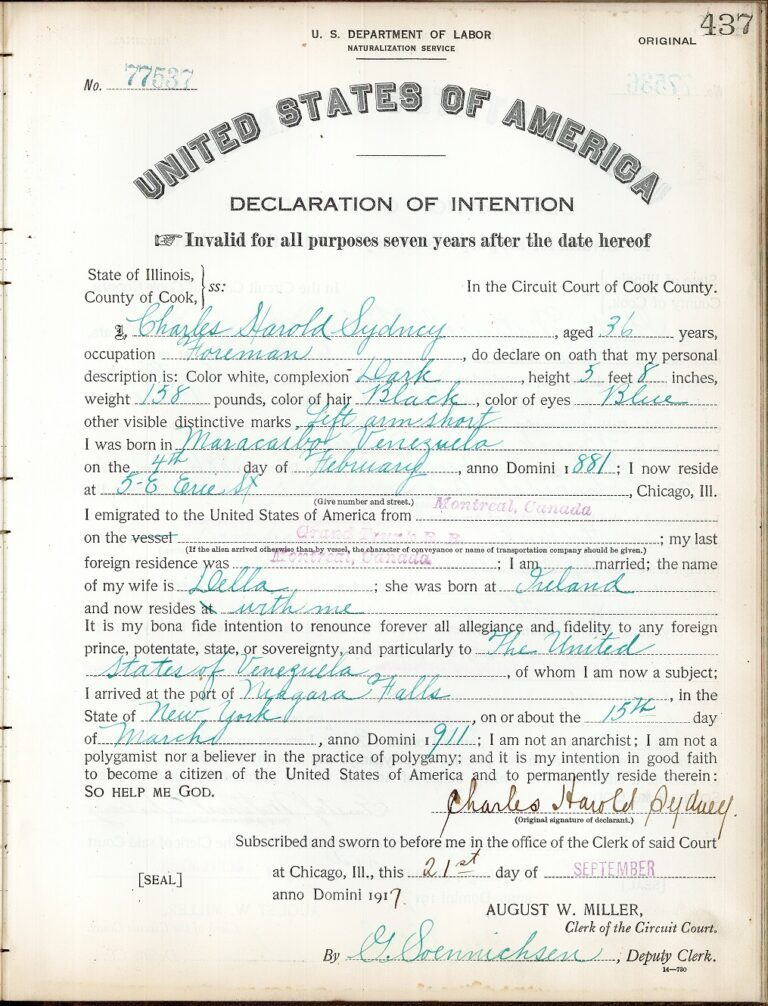 437
U. S. DEPARTMENT OF LABOR
NATURALIZATION SERVICE
ORIGINAL
No. 77537
UNITED STATES OF AMERICA
DECLARATION OF INTENTION
☞ Invalid for all purposes seven years after the date hereof
State of Illinois,
County of Cook, } ss: In the Circuit Court of Cook County.
I, Charles Harold Sydney, aged 36 years,
occupation Foreman, do declare on oath that my personal
description is: Color white, complexion Dark, height 5 feet 8 inches,
weight 158 pounds, color of hair Black, color of eyes Blue
other visible distinctive marks Left arm short
I was born in Maracarbo, Venezuela
on the 4th day of February, anno Domini 1881; I now reside
at 5-E Erie St, Chicago, Ill.
(Give number and street.)
I emigrated to the United States of America from Montreal, Canada
on the vessel Grand Trunk R. R.; my last
(If the alien arrived otherwise than by vessel, the character of conveyance or name of transportation company should be given.)
foreign residence was Montreal, Canada; I am married; the name
of my wife is Della; she was born at Ireland
and now resides at with me
It is my bona fide intention to renounce forever all allegiance and fidelity to any foreign
prince, potentate, state, or sovereignty, and particularly to The United
States of Venezuela, of whom I am now a subject;
I arrived at the port of Niagara Falls, in the
State of New York, on or about the 15th day
of March, anno Domini 1911; I am not an anarchist; I am not a
polygamist nor a believer in the practice of polygamy; and it is my intention in good faith
to become a citizen of the United States of America and to permanently reside therein:
SO HELP ME GOD.
Charles Harold Sydney.
(Original signature of declarant.)
Subscribed and sworn to before me in the office of the Clerk of said Court
at Chicago, Ill., this 21st day of SEPTEMBER
[SEAL]
anno Domini 1917.
AUGUST W. MILLER,
Clerk of the Circuit Court.
By G. Soennichsen, Deputy Clerk.
14—780